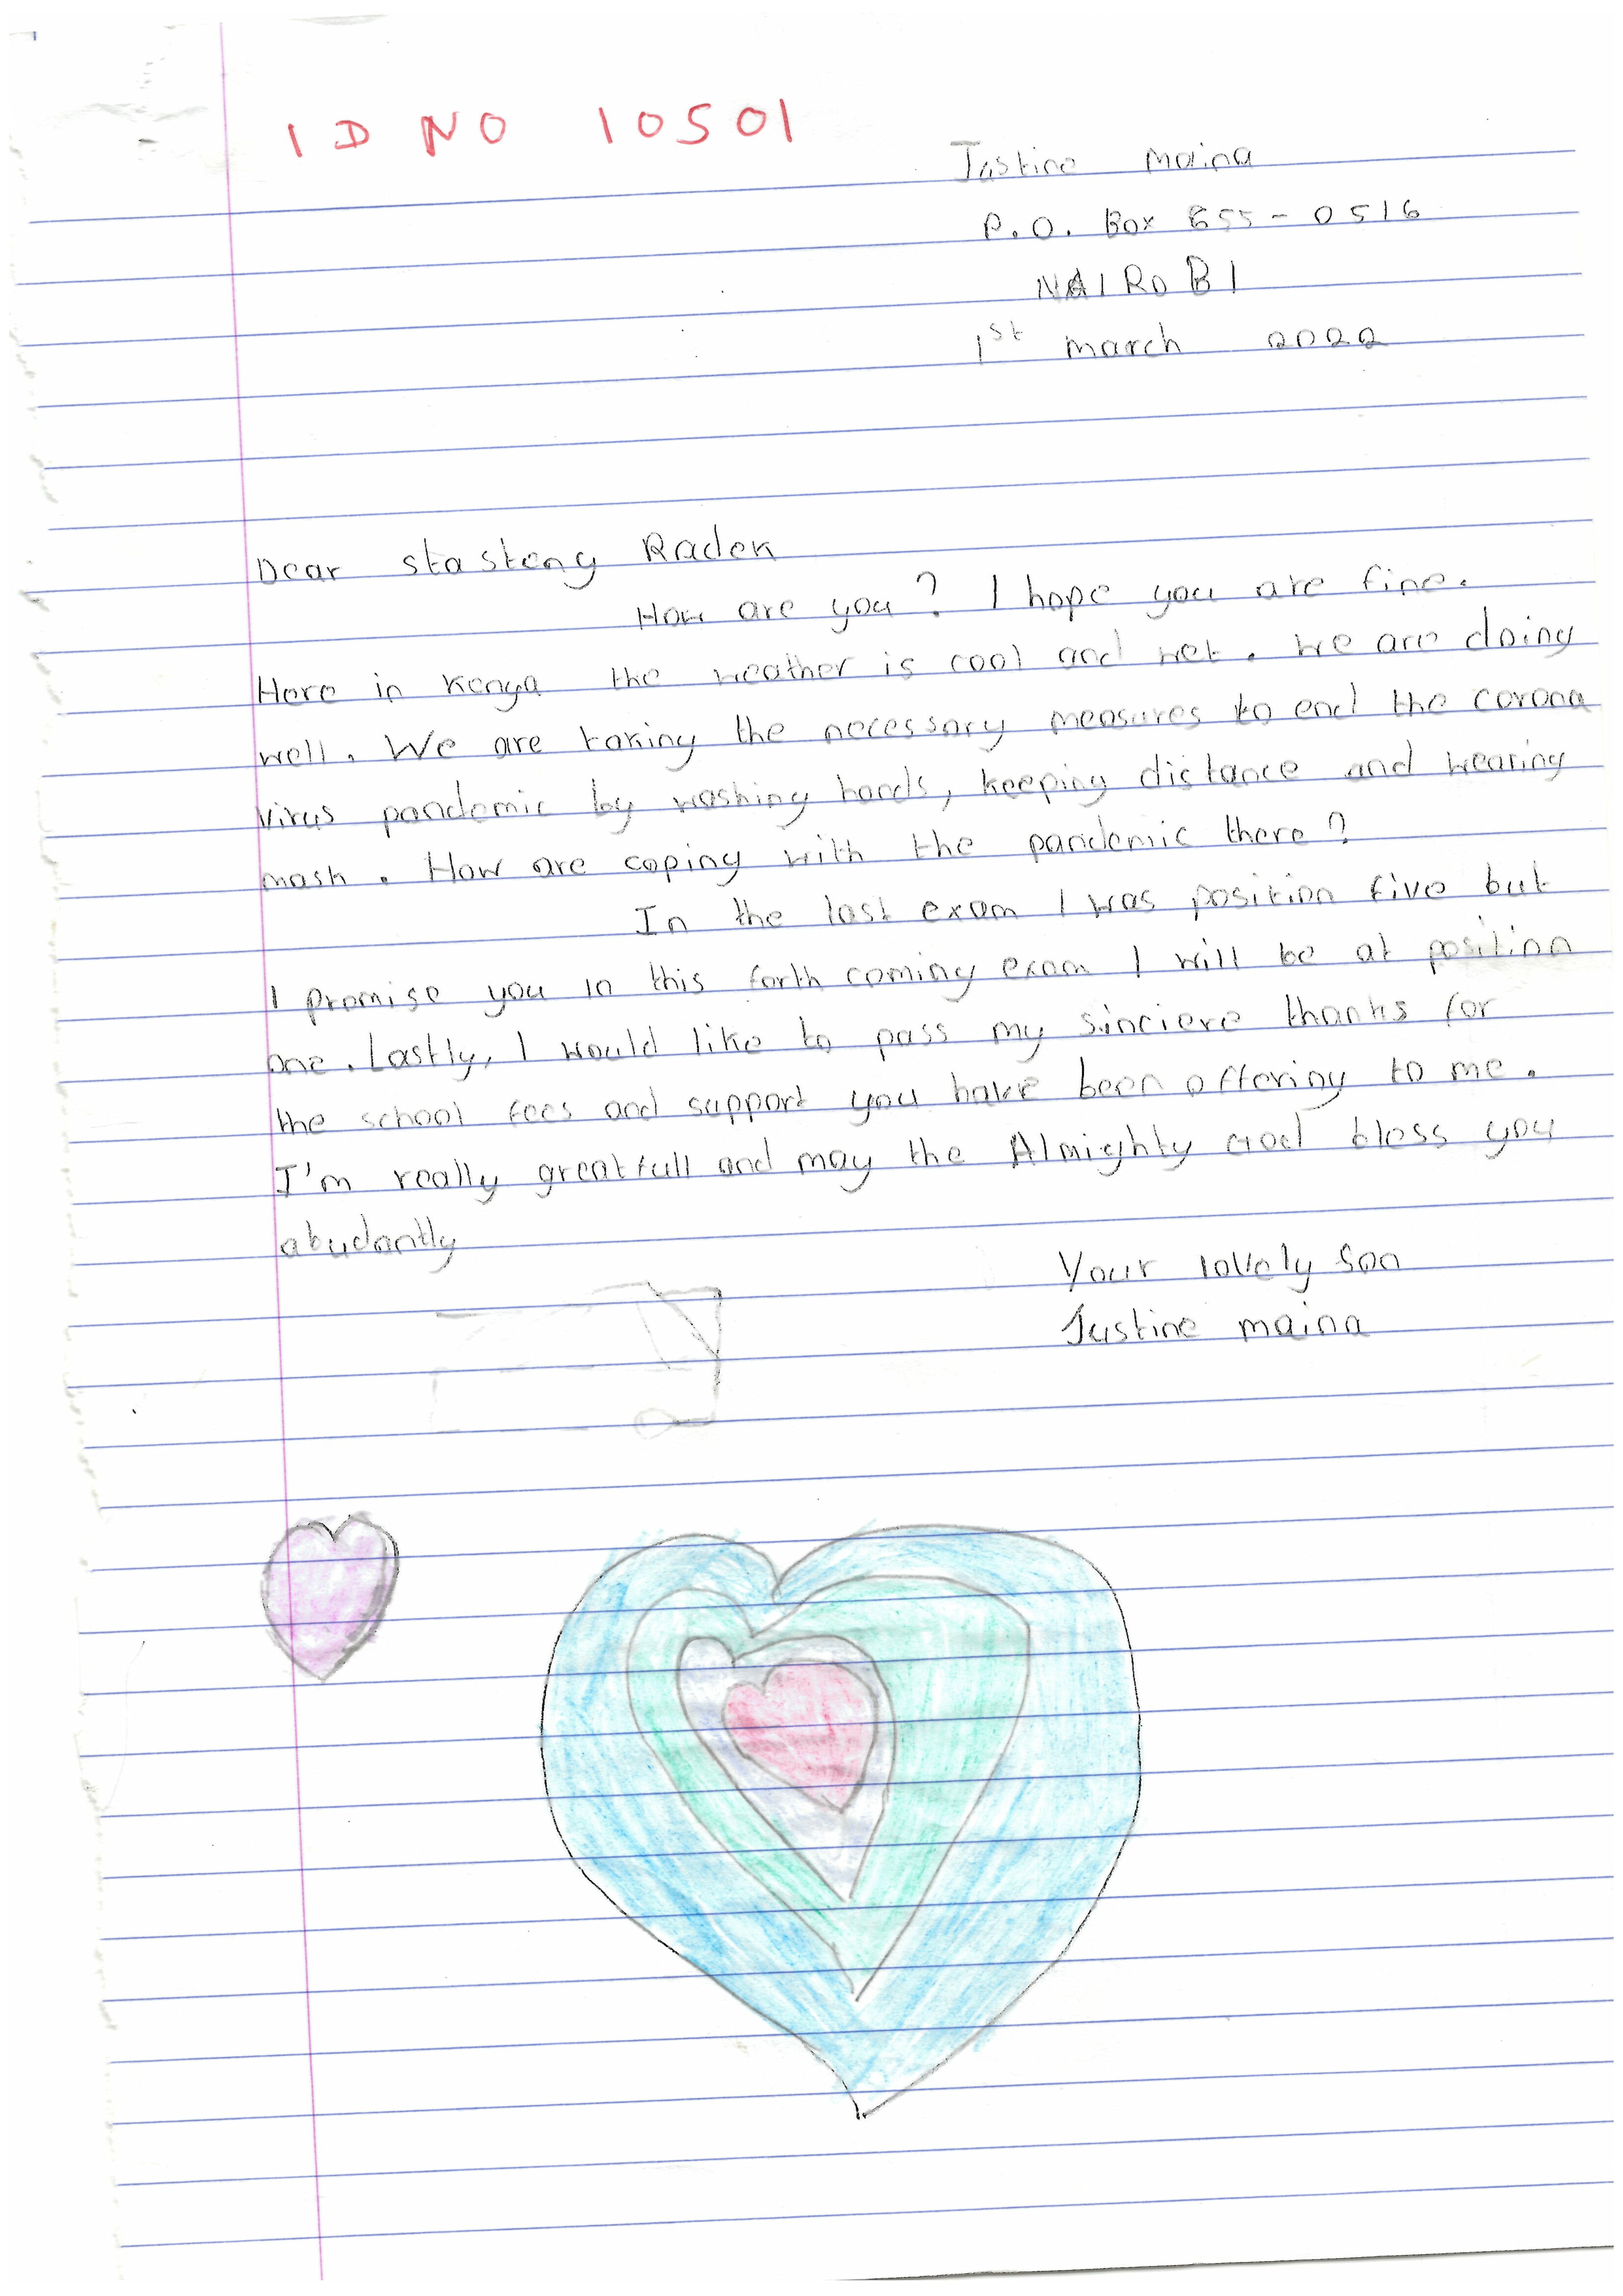 ID NO 10501
Justine Maina
P.O. Box 655-0516
NAIROBI
1st march 2022
Dear Stasteny Radek
How are you? I hope you are fine.
Here in Kenya the weather is cool and wet. We are doing
well. We are taking the necessary measures to end the corona
virus pandemic by washing hands, keeping distance and wearing
mask. How are coping with the pandemic there?
In the last exam I was position five but
I promise you in this forth coming exam I will be at position
one. Lastly, I would like to pass my sinciere thanks for
the school fees and support you have been offering to me.
I'm really greatfull and may the Almighty God bless you
abudantly
Your lovely son
Justine maina